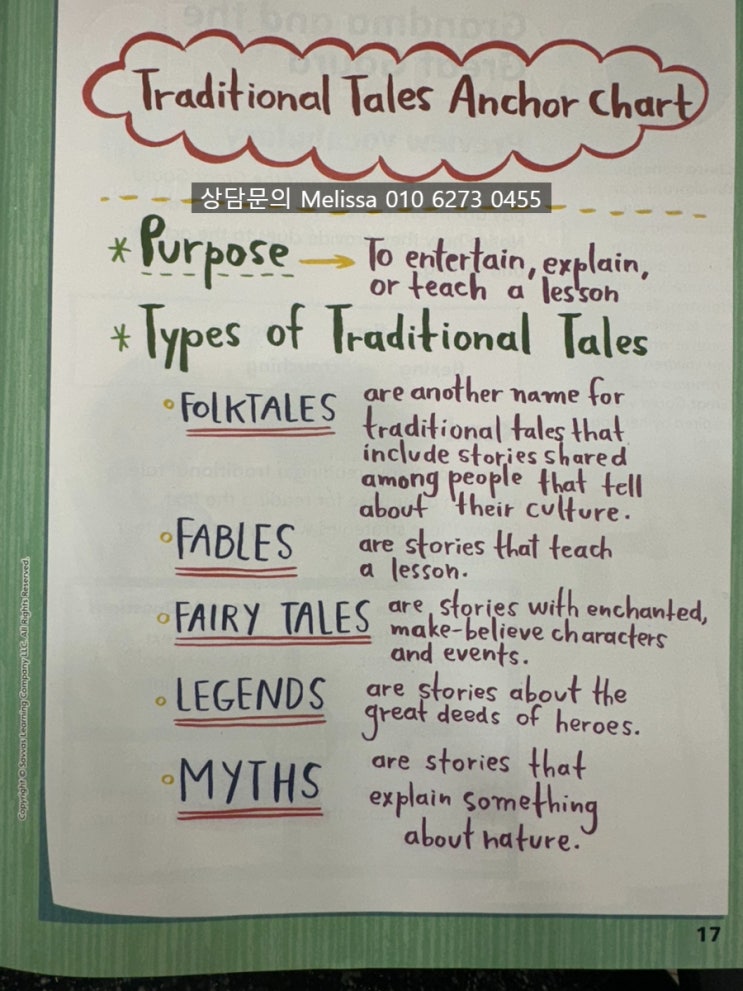 Traditional Tales Anchor Chart
상담문의 Melissa 010 6273 0455
* Purpose → To entertain, explain,
or teach a lesson
* Types of Traditional Tales
FOLKTALES are another name for
traditional tales that
include stories shared
among people that tell
about their culture.
FABLES are stories that teach
a lesson.
FAIRY TALES are stories with enchanted,
make-believe characters
and events.
LEGENDS are stories about the
great deeds of heroes.
MYTHS are stories that
explain something
about nature.
Copyright © Savvas Learning Company LLC. All Rights Reserved.
17